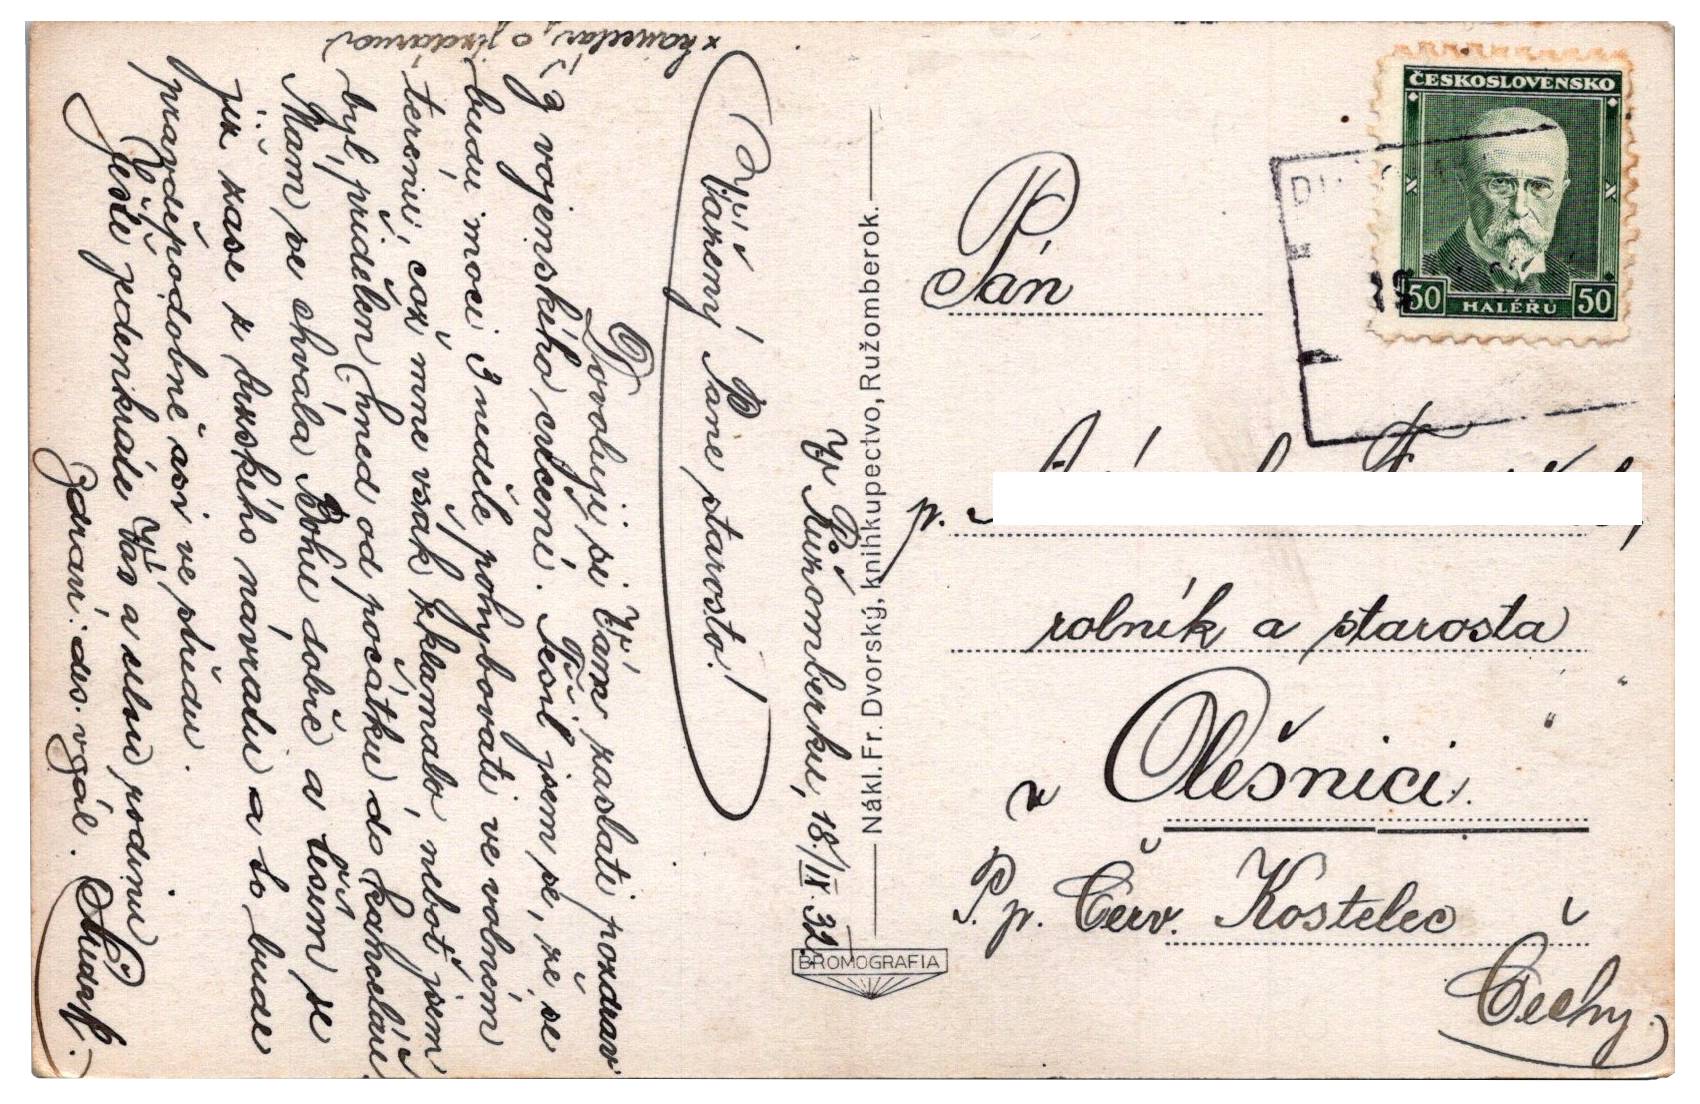 VRužomberku, 18./IX. 32.
Vážený Pane starosto!
Dovoluji si Vám zaslati pozdrav
z vojenského cvičení. Těšil jsem se, že se
budu moci 3 neděle pohybovati ve volném
terénu, což mne však zklamalo, neboť jsem
byl přidělen hned od počátku do kanceláře
Mám se chvála Bohu dobře a těším se
již zase z brzského návratu a to bude
pravděpodobně asi ve středu.
Ještě jedenkráte Vás a celou rodinu
zdraví: des. vgál.
x kancelář, o
NÁKL. Fr. Dvorský, knihkupectvo, Ružomberok.
BROMOGRAFIA
ČESKOSLOVENSKO
50 HALÉŘŮ 50
Pán
p.
rolník a starosta
v Olešnici
P. p. Červ. Kostelec
Čechy.